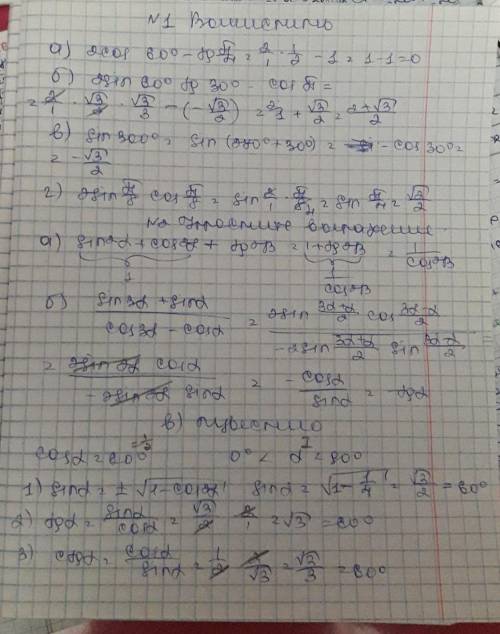 №1 Вычислить
а) 2cos 60° - tg π/4 = 2/1 · 1/2 - 1 = 1 - 1 = 0
б) 2sin 60° tg 30° - cos =
= 2/1 · √3/2 · √3/3 - (-√3/2) = + √3/2 = 2+√3/2
в) sin 300° = sin (270° + 30°) = - cos 30° =
= -√3/2
г) 2sin π/8 cos π/8 = sin 2/1 · π/8 4 = sin π/4 = √3/2
№2 Упростите выражение.
а) sin²α + cos²α + tg²β = 1 + tg²β = 1/cos²β
1 1/cos²β
б) sin3α + sinα / cos3α - cosα = 2sin 3α+α/2 cos 3α-α/2 / -2sin 3α+α/2 sin 3α-α/2
= 2sin 2α cosα / -2sin 2α sinα = -cosα/sinα =
в) Известно
cosα = 60° = 1/2 0° < α < 90° I
1) sinα = ± √1-cos²α sinα = √1 - 1/4 = √3/2 = 60°
2) tgα = sinα/cosα = √3/2 · 2/1 = √3 = 60°
3) ctgα = cosα/sinα = 1/2 · 2/√3 = √3/3 = 60°